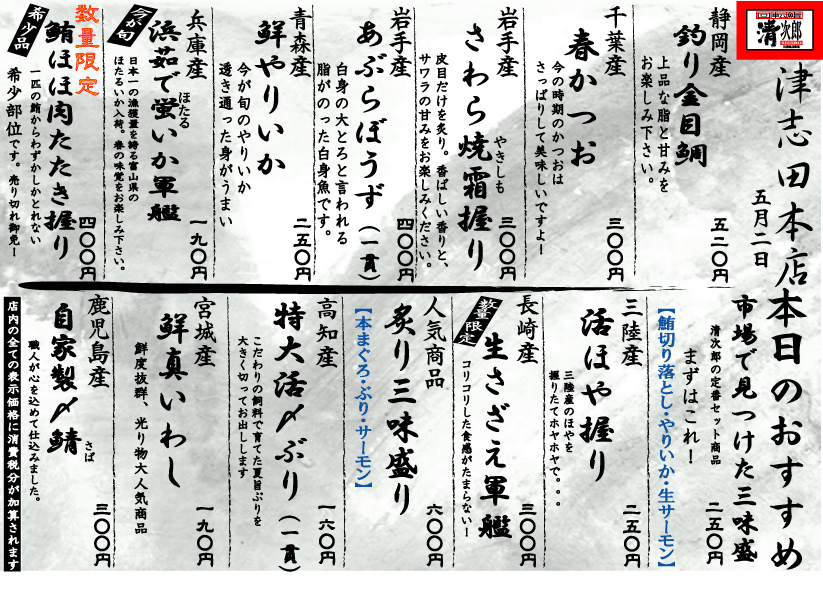 回転鮨
清次郎
津志田本店
五月二日
本日のおすすめ
静岡産
釣り金目鯛
上品な脂と甘みを
お楽しみ下さい。
五二〇円
千葉産
春かつお
今の時期のかつおは
さっぱりして美味しいですよー
三〇〇円
岩手産
さわら焼霜握り
やきしも
皮目だけを炙り。香ばしい香りと、
サワラの甘みをお楽しみください。
三〇〇円
岩手産
あぶらぼうず(一貫)
白身の大とろと言われる
脂がのった白身魚です。
四〇〇円
青森産
鮮やりいか
今が旬のやりいか
透き通った身がうまい
二五〇円
今が旬
兵庫産
浜茹で蛍いか軍艦
ほたる
日本一の漁獲量を誇る富山県の
ほたるいか入荷。春の味覚をお楽しみ下さい。
一九〇円
数量限定
希少品
鮪ほほ肉たたき握り
一匹の鮪からわずかしかとれない
希少部位です。売り切れ御免ー
四〇〇円
市場で見つけた三味盛
清次郎の定番セット商品
まずはこれ!
二五〇円
【鮪切り落とし・やりいか・生サーモン】
三陸産
活ほや握り
三陸産のほやを
握りたてホヤホヤで。。。
二五〇円
長崎産
数量限定
生さざえ軍艦
コリコリした食感がたまらないー
三〇〇円
人気商品
炙り三味盛り
【本まぐろ・ぶり・サーモン】
六〇〇円
高知産
特大活〆ぶり(一貫)
こだわりの飼料で育てた夏旨ぶりを
大きく切ってお出しします
一六〇円
宮城産
鮮真いわし
鮮度抜群、光り物大人気商品
一九〇円
鹿児島産
自家製〆鯖
さば
職人が心を込めて仕込みました。
三〇〇円
店内の全ての表示価格に消費税分が加算されます